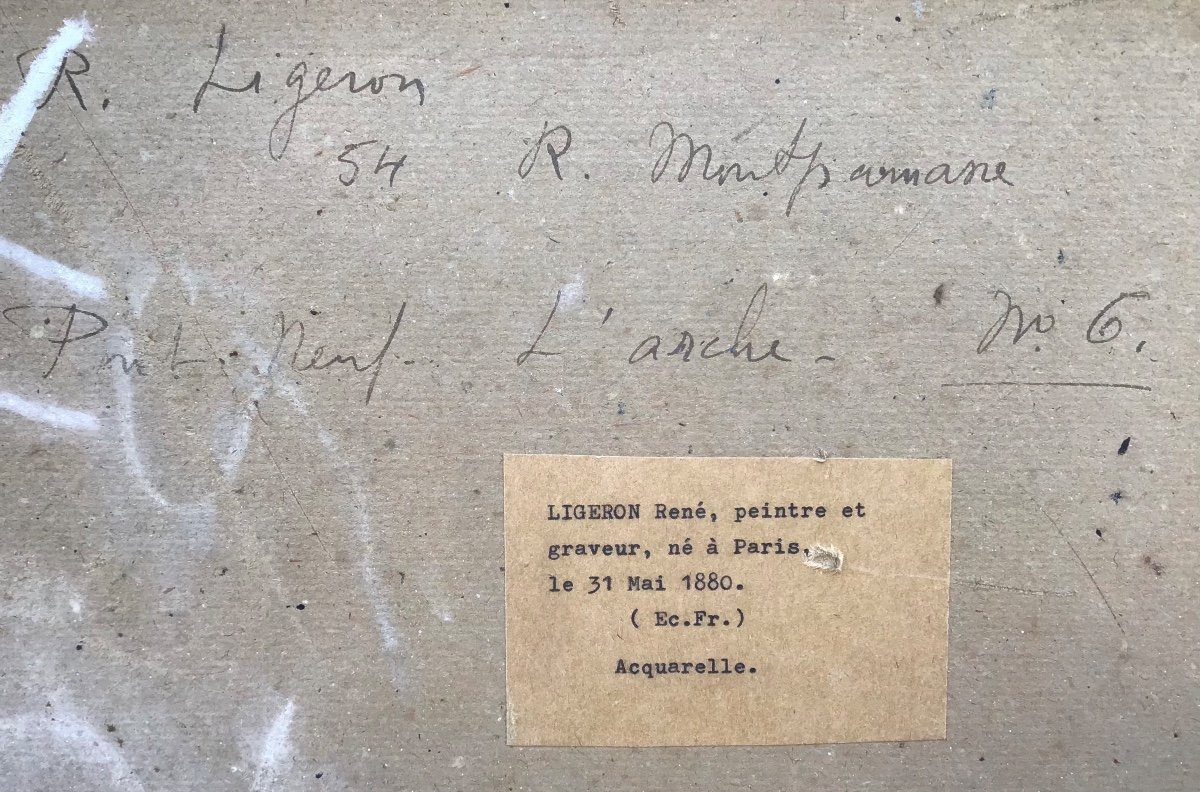 R. Ligeron
54 R. Montparnasse
Pont. Neuf - L'arche - No 6.
LIGERON René, peintre et
graveur, né à Paris,
le 31 Mai 1880.
( Ec.Fr.)
Acquarelle.